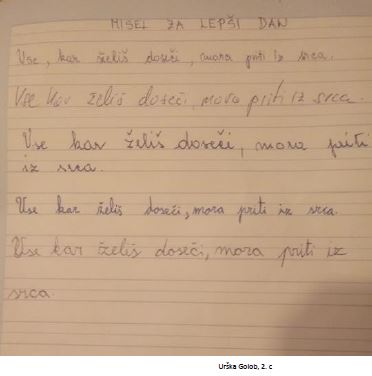 MISEL ZA LEPŠI DAN
Vse, kar želiš doseči, mora priti iz srca.
Vse kar želiš doseči, mora priti iz srca.
Vse kar želiš doseči, mora priti
iz srca.
Vse kar želiš doseči, mora priti iz srca.
Vse kar želiš doseči, mora priti iz
srca.
Urška Golob, 2. c